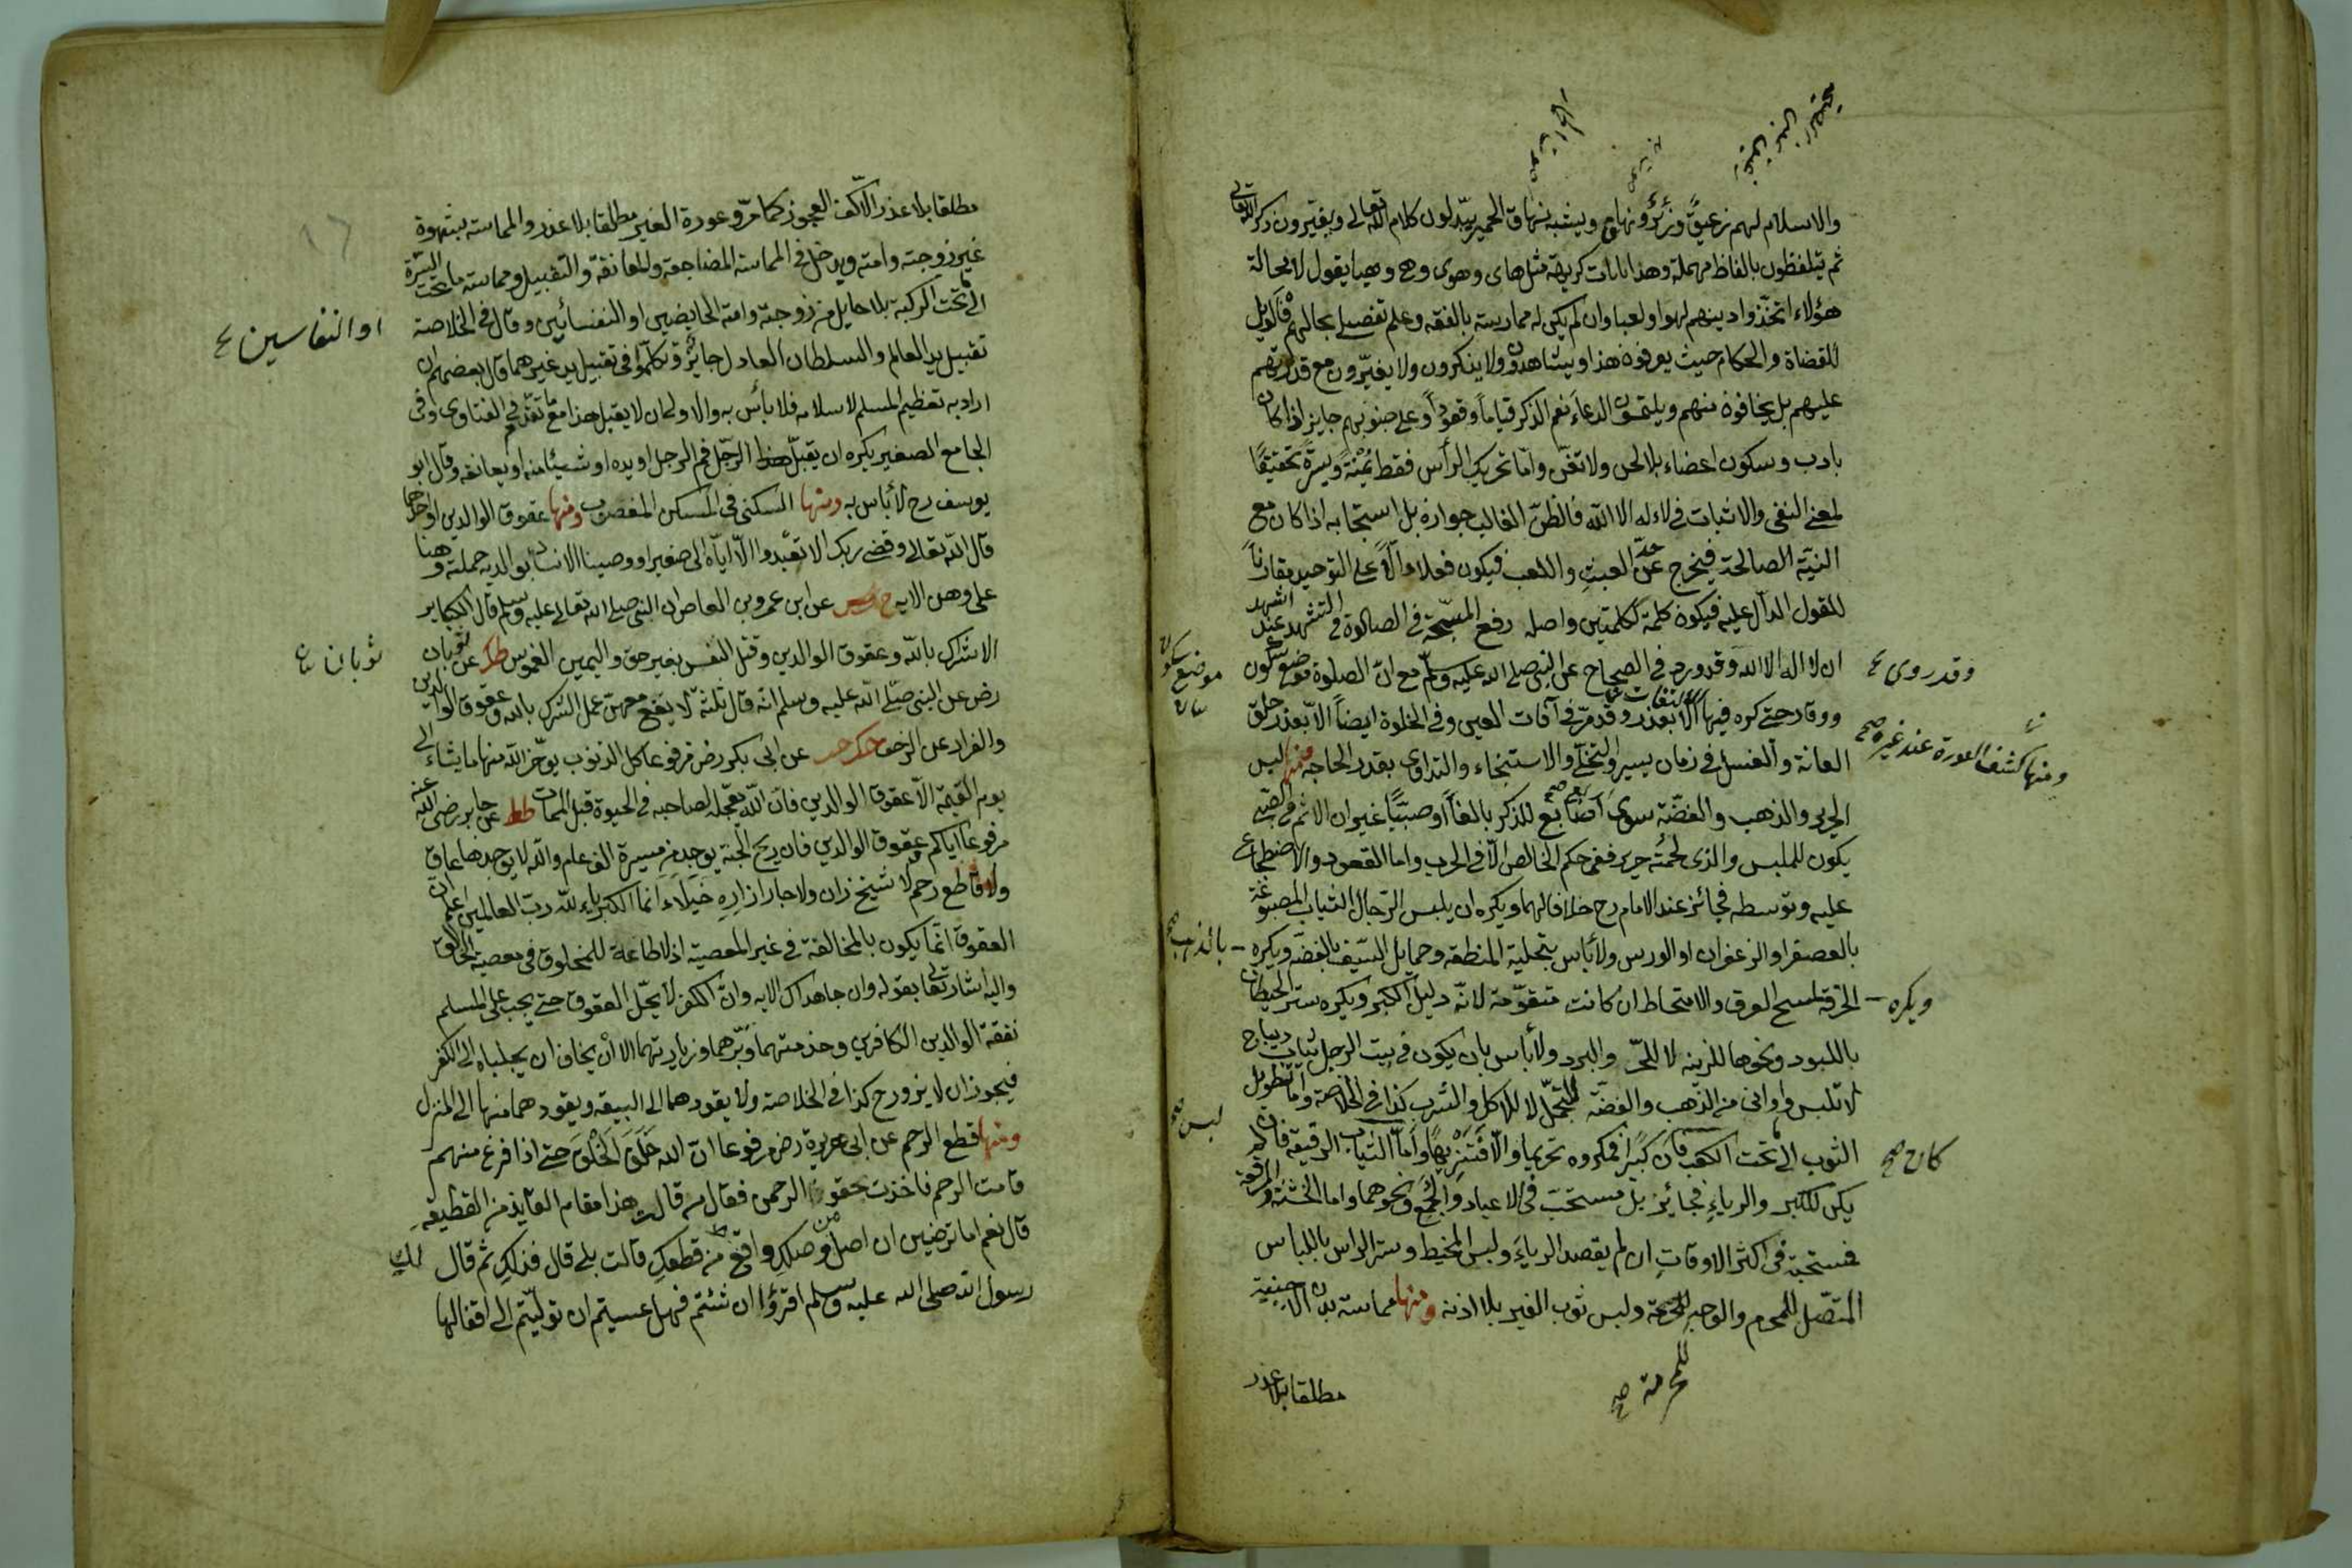 والاسلام لهم زعيق وزئر ونهاق ويشبه نهاق الحمير يبدلون كلام الله تعالى ويغيرون ذكر الله تعالى
ثم يتلفظون بالفاظ مهملة وهذيانات كريهة مثل هاى وهوى وهى وهيا يقول لا محالة
هؤلاء اتخذوا دينهم لهوا ولعبا وان لم يكن له ممارسة بالفقه وعلم تفصيل بحالهم فالويل
للقضاة والحكام حيث يعرفون هذا ويشاهدون ولا ينكرون ولا يغيرون مع قدرتهم
عليهم بل يخافون منهم ويلتمسون الدعاء نعم الذكر قياما وقعودا وعلى جنوبهم جايز اذا كان
بادب وسكون اعضاء بلا لحن ولا تغن واما تحريك الرأس فقط يمنة ويسرة تحقيقا
لمعنى النفى والاثبات فى لا اله الا الله فالظن الغالب جوازه بل استحبابه اذا كان مع
النية الصالحة فيخرج عن حد العبث واللعب فيكون فعلا دالا على التوحيد مقارنا
للقول الدال عليه فيكون كلمة ككلمتين واصله رفع المسبحة فى الصلوة فى التشهد عند اشهد
ان لا اله الا الله وقد ورد فى الصحاح عن النبى صلى الله عليه وسلم مع ان الصلوة موضع سكون
وقد روى
موضع سكون
ووقار حتى كره فيها الالتفات الا بعذر وقد مر فى آفات العين وفى الخلوة ايضا الا بعذر حلق
ومنها كشف العورة عند غيره صح
العانة والغسل فى زمان يسير والتخلى والاستنجاء والتداوى بقدر الحاجة ومنها لبس
الحرير والذهب والفضة سوى اربع اصابع للذكر بالغا او صبيا غير ان الاثم فى الصبى
يكون للملبس والذى لحمته حرير ففى حكم الخالص الا فى الحرب واما القعود والاضطجاع
عليه وتوسطه فجائز عند الامام رح خلافا لهما ويكره ان يلبس الرجال الثياب المصبوغة
بالعصفر او الزعفران او الورس ولا بأس بتحلية المنطقة وحمايل السيف بالفضة ويكره
بالذهب صح
ويكره
الخرقة لمسح العرق والامتخاط ان كانت متقومة لانه دليل الكبر ويكره ستر الحيطان
باللبود ونحوها للزينة لا للحر والبرد ولا بأس بان يكون فى بيت الرجل ثياب ديباج
لا تلبس واوانى من الذهب والفضة للتجمل لا للاكل والشرب كذا فى الخلاصة واما تطويل
لبس صح
الثوب الى تحت الكعب فان كبرا فمكروه تحريما والا فتنزيها واما الثياب الرقيقة فان لم
كان صح
يكن للكبر والرياء فجايز بل مستحب فى الاعياد والجمع ونحوهما واما الخشنة والمرقعة
فمستحبة فى اكثر الاوقات ان لم يقصد الرياء ولبس المخيط وستر الراس باللباس
المتصل للمحرم والوجه للمحرمة ولبس ثوب الغير بلا اذنه ومنها مماسة بدن الاجنبية
للمحرمة صح
مطلقا بلا عذر
١٦
مطلقا بلا عذر الا كف العجوز كما مر وعورة الغير مطلقا بلا عذر والمماسة بشهوة
غير زوجته وامته ويدخل فى المماسة المضاجعة والمعانقة والتقبيل ومماسة ما تحت السرة
الى تحت الركبة بلا حايل من زوجته وامته الحايضين او النفسائين وقال فى الخلاصة
او النفاسين
تقبيل يد العالم والسلطان العادل جائز وتكلموا فى تقبيل يد غيرهما قال بعضهم ان
اراد به تعظيم المسلم لاسلامه فلا بأس به والاولى ان لا يقبل هذا مع تقدم فى الفتاوى وفى
الجامع الصغير يكره ان يقبل الرجل فم الرجل او يده او شيئا منه او يعانقه وقال ابو
يوسف رح لا بأس به ومنها السكنى فى المسكن المغصوب ومنها عقوق الوالدين او احدهما
قال الله تعالى وقضى ربك الا تعبدوا الا اياه الى صغيرا ووصينا الانسان بوالديه حملته وهنا
على وهن الايه خ عن ابن عمرو بن العاص ان النبى صلى الله تعالى عليه وسلم قال الكباير
الاشراك بالله وعقوق الوالدين وقتل النفس بغير حق واليمين الغموس طك عن ثوبان
ثوبان
رض عن النبى صلى الله عليه وسلم انه قال ثلثة لا ينفع معهن عمل الشرك بالله وعقوق الوالدين
والفرار عن الزحف حك عن ابى بكر رض مرفوعا كل الذنوب يؤخر الله منها ما يشاء الى
يوم القيمة الا عقوق الوالدين فان الله يعجله لصاحبه فى الحيوة قبل الممات طط عن جابر رضى الله عنه
مرفوعا اياكم وعقوق الوالدين فان ريح الجنة يوجد من مسيرة الف عام والله لا يوجدها عاق
ولا قاطع رحم ولا شيخ زان ولا جار ازاره خيلاء انما الكبرياء لله رب العالمين اعلم ان
العقوق انما يكون بالمخالفة فى غير المعصية اذ لا طاعة للمخلوق فى معصية الخالق
واليه اشار تعالى بقوله وان جاهداك الايه وان الكفر لا يحل العقوق حتى يجب على المسلم
نفقة الوالدين الكافرين وخدمتهما وبرهما وزيارتهما الا ان يخاف ان يجلباه الى الكفر
فيجوز ان لا يزور ح كذا فى الخلاصة ولا يقودهما الى البيعة ويقودهما منها الى المنزل
ومنها قطع الرحم عن ابى هريرة رض مرفوعا ان الله خلق الخلق حتى اذا فرغ منهم
قامت الرحم فاخذت بحقو الرحمن فقال مه قالت هذا مقام العايذ من القطيعة
قال نعم اما ترضين ان اصل من وصلك واقطع من قطعك قالت بلى قال فذلك لك ثم قال
رسول الله صلى الله عليه وسلم اقرؤا ان شئتم فهل عسيتم ان توليتم الى اقفالها